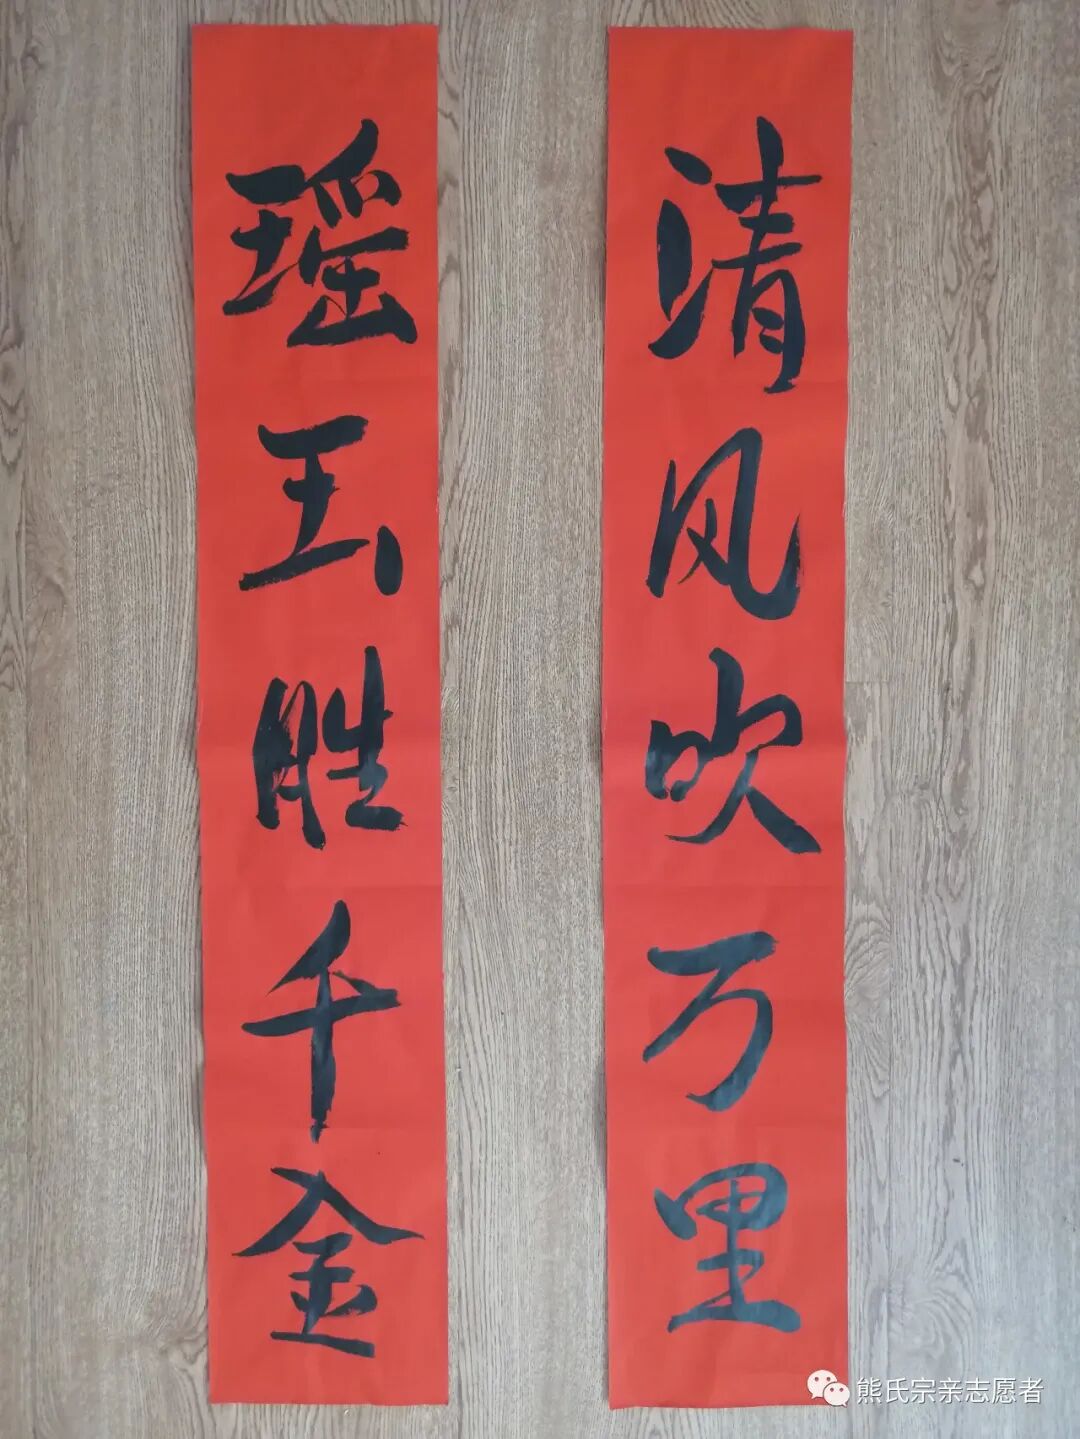 清风吹万里
瑶玉胜千金
熊氏宗亲志愿者